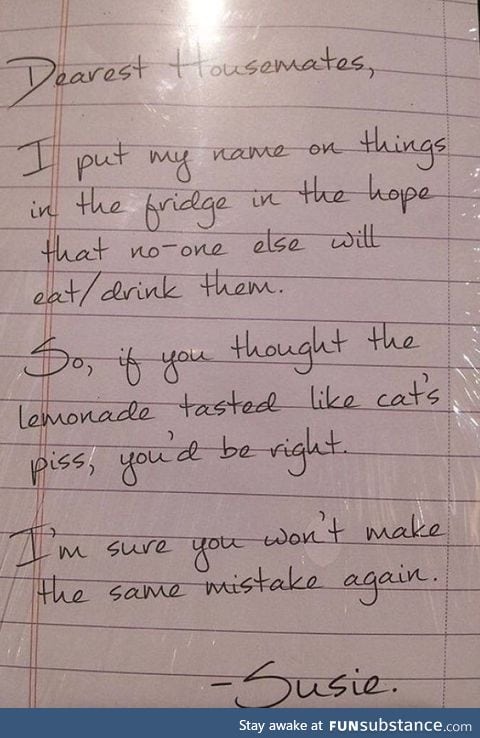 Dearest Housemates,
I put my name on things
in the fridge in the hope
that no-one else will
eat/drink them.
So, if you thought the
lemonade tasted like cat's
piss, you'd be right.
I'm sure you won't make
the same mistake again.
-Susie.
Stay awake at FUNsubstance.com